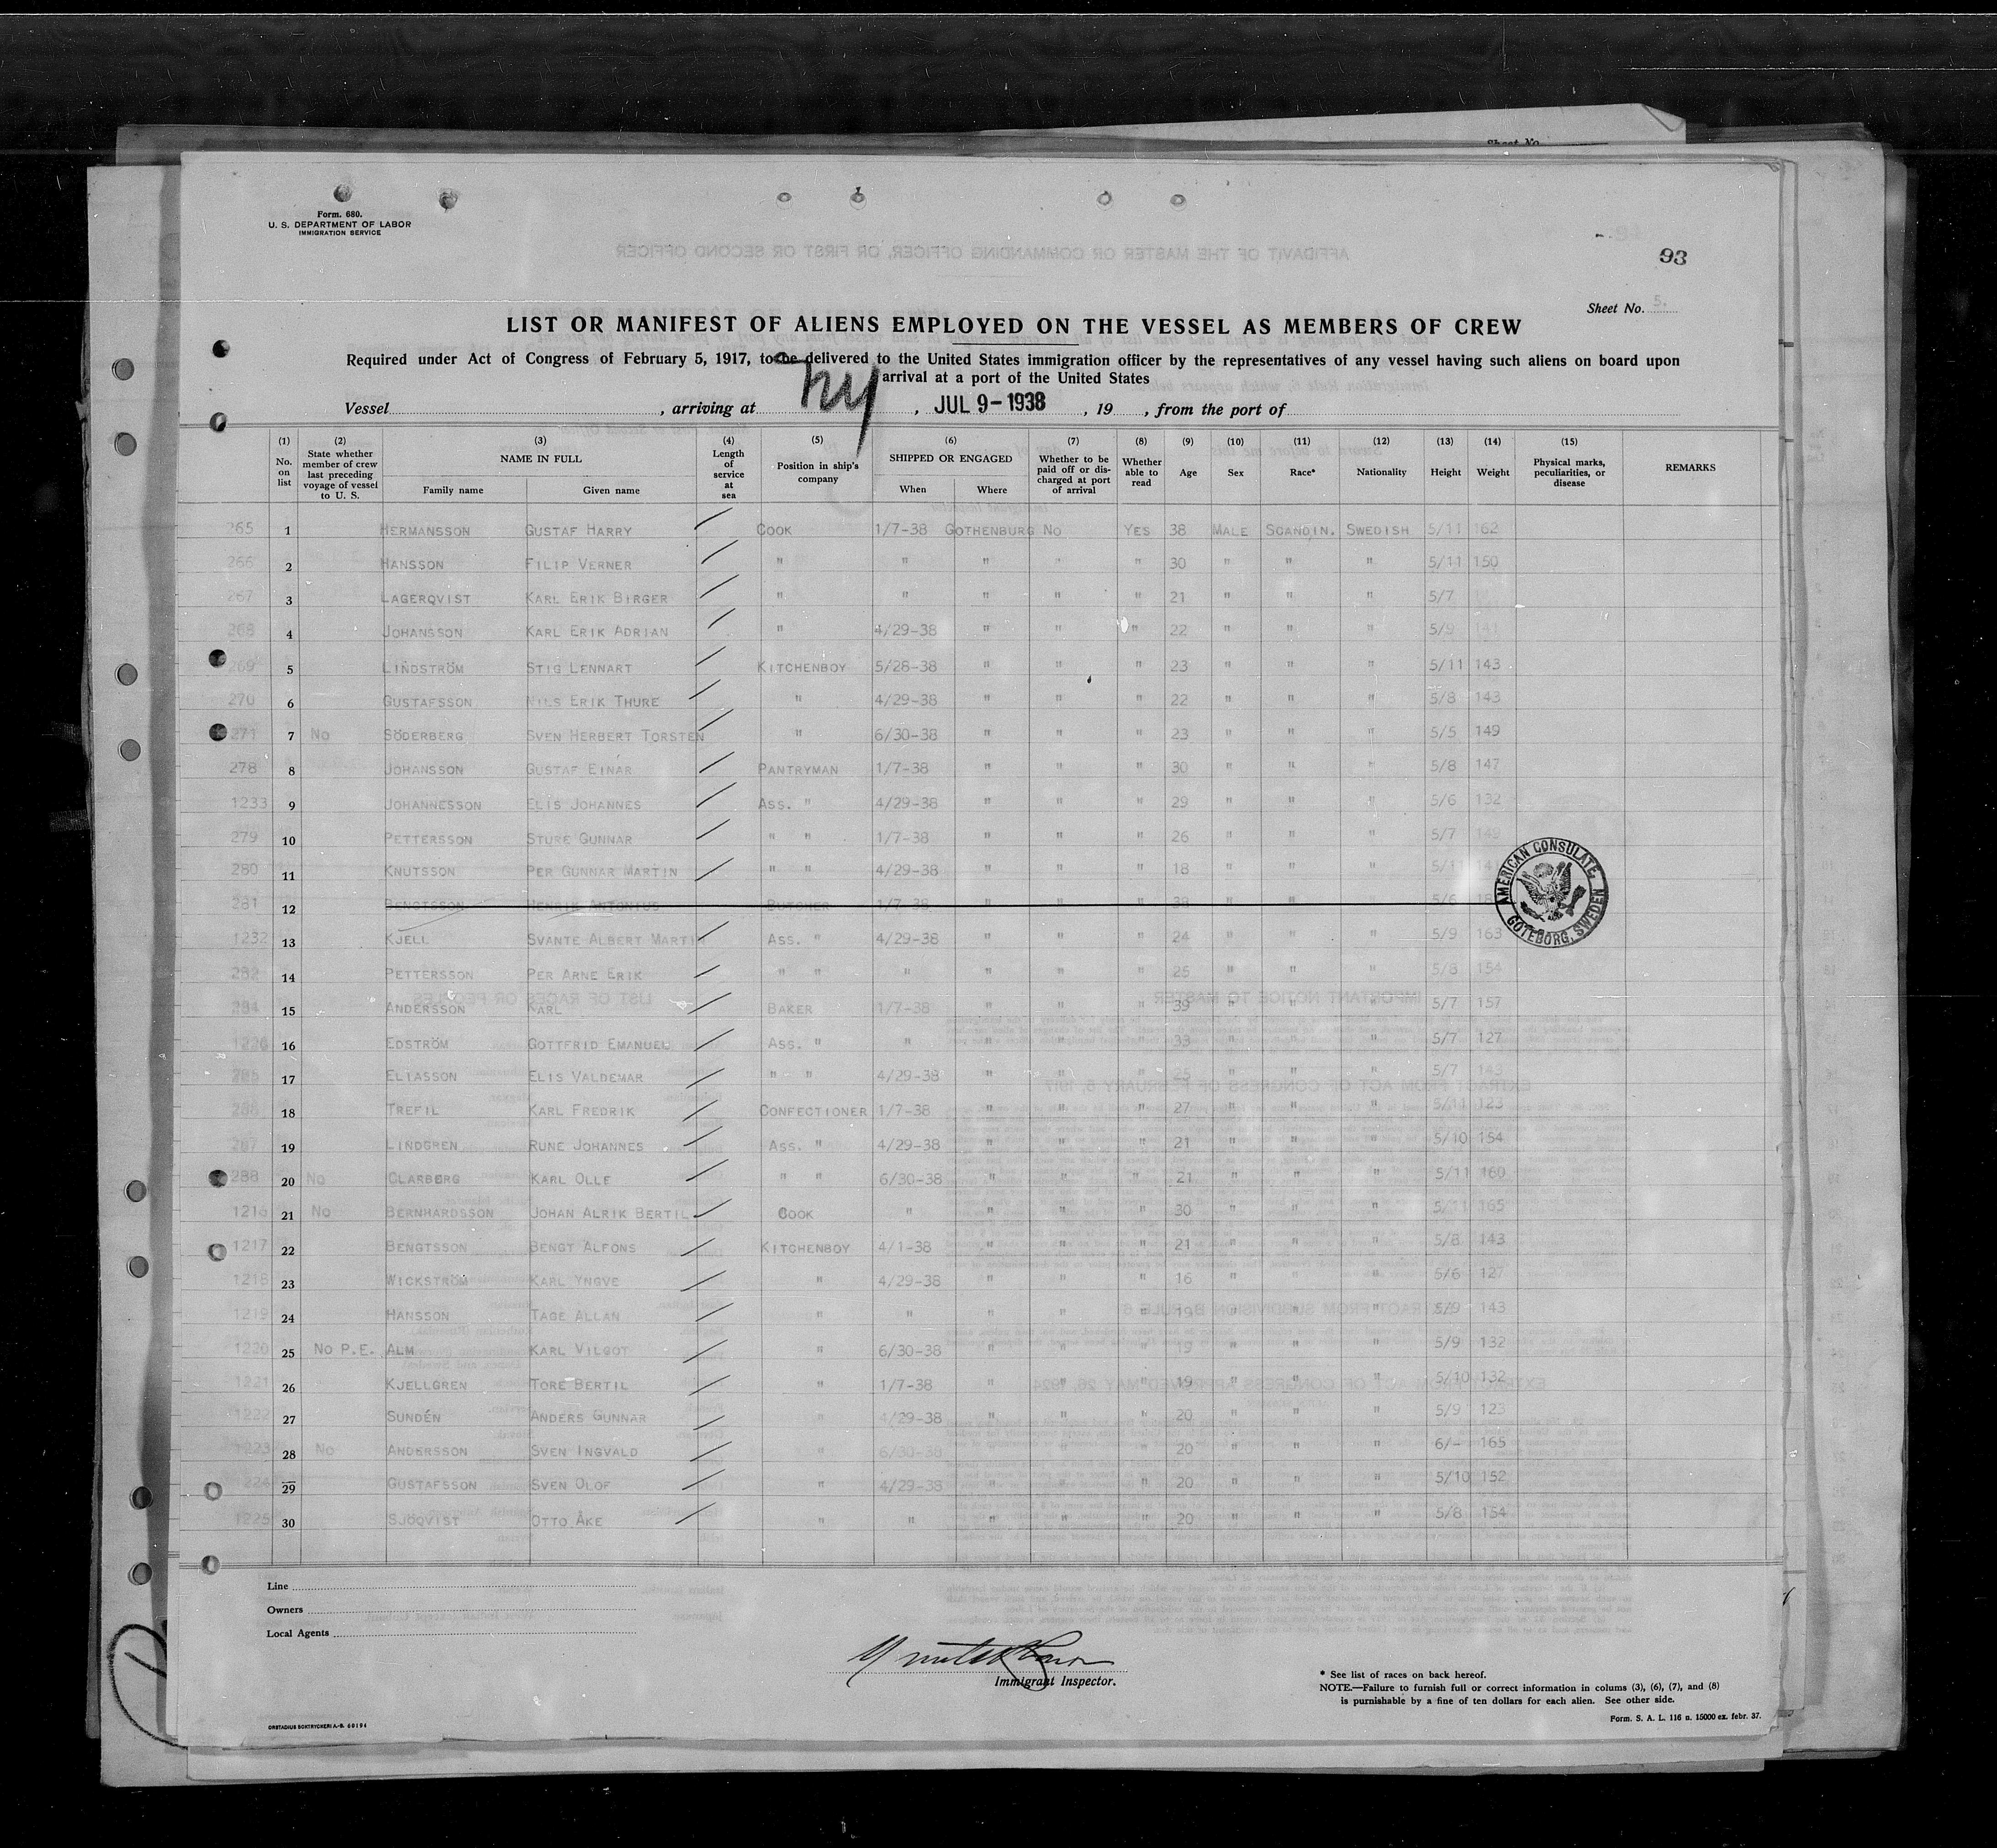 Sheet No.
Form. 680.
U. S. DEPARTMENT OF LABOR
IMMIGRATION SERVICE
93
Sheet No. 5.
LIST OR MANIFEST OF ALIENS EMPLOYED ON THE VESSEL AS MEMBERS OF CREW
Required under Act of Congress of February 5, 1917, to be delivered to the United States immigration officer by the representatives of any vessel having such aliens on board upon
arrival at a port of the United States
Vessel , arriving at NY , JUL 9-1938 , 19 , from the port of
(1) (2) (3) (4) (5) (6) (7) (8) (9) (10) (11) (12) (13) (14) (15)
No. on list State whether member of crew last preceding voyage of vessel to U. S. NAME IN FULL Family name Given name Length of service at sea Position in ship's company SHIPPED OR ENGAGED When Where Whether to be paid off or discharged at port of arrival Whether able to read Age Sex Race* Nationality Height Weight Physical marks, peculiarities, or disease REMARKS
265 1 HERMANSSON GUSTAF HARRY COOK 1/7-38 GOTHENBURG NO YES 38 MALE SCANDIN. SWEDISH 5/11 162
266 2 HANSSON FILIP VERNER " " " " " 30 " " " 5/11 150
267 3 LAGERQVIST KARL ERIK BIRGER " " " " " 21 " " " 5/7
268 4 JOHANSSON KARL ERIK ADRIAN " 4/29-38 " " " 22 " " " 5/9 141
269 5 LINDSTRÖM STIG LENNART KITCHENBOY 5/28-38 " " " 23 " " " 5/11 143
270 6 GUSTAFSSON NILS ERIK THURE " 4/29-38 " " " 22 " " " 5/8 143
271 7 NO SÖDERBERG SVEN HERBERT TORSTEN " 6/30-38 " " " 23 " " " 5/5 149
278 8 JOHANSSON GUSTAF EINAR PANTRYMAN 1/7-38 " " " 30 " " " 5/8 147
1233 9 JOHANNESSON ELIS JOHANNES ASS. " 4/29-38 " " " 29 " " " 5/6 132
279 10 PETTERSSON STURE GUNNAR " " 1/7-38 " " " 26 " " " 5/7 149
280 11 KNUTSSON PER GUNNAR MARTIN " " 4/29-38 " " " 18 " " " 5/11 141
281 12 BENGTSSON HENRIK ANTONIUS BUTCHER 1/7-38 " " " 38 " " " 5/6
1232 13 KJELL SVANTE ALBERT MARTIN ASS. " 4/29-38 " " " 24 " " " 5/9 163
282 14 PETTERSSON PER ARNE ERIK " " " " " " 25 " " " 5/8 154
284 15 ANDERSSON KARL BAKER 1/7-38 " " " 39 " " " 5/7 157
1226 16 EDSTRÖM GOTTFRID EMANUEL ASS. " " " " " 33 " " " 5/7 127
285 17 ELIASSON ELIS VALDEMAR " " 4/29-38 " " " 25 " " " 5/7 143
286 18 TREFIL KARL FREDRIK CONFECTIONER 1/7-38 " " " 27 " " " 5/11 123
287 19 LINDGREN RUNE JOHANNES ASS. " 4/29-38 " " " 21 " " " 5/10 154
288 20 NO CLARBERG KARL OLLE " " 6/30-38 " " " 21 " " " 5/11 160
1216 21 NO BERNHARDSSON JOHAN ALRIK BERTIL COOK " " " " 30 " " " 5/11 165
1217 22 BENGTSSON BENGT ALFONS KITCHENBOY 4/1-38 " " " 21 " " " 5/8 143
1218 23 WICKSTRÖM KARL YNGVE " 4/29-38 " " " 16 " " " 5/6 127
1219 24 HANSSON TAGE ALLAN " " " " " 19 " " " 5/9 143
1220 25 NO P.E. ALM KARL VILGOT " 6/30-38 " " " 19 " " " 5/9 132
1221 26 KJELLGREN TORE BERTIL " 1/7-38 " " " 19 " " " 5/10 132
1222 27 SUNDÉN ANDERS GUNNAR " 4/29-38 " " " 20 " " " 5/9 123
1223 28 NO ANDERSSON SVEN INGVALD " 6/30-38 " " " 20 " " " 6/- 165
1224 29 GUSTAFSSON SVEN OLOF " 4/29-38 " " " 20 " " " 5/10 152
1225 30 SJÖQVIST OTTO ÅKE " " " " " 20 " " " 5/8 154
AMERICAN CONSULATE,
GOTEBORG, SWEDEN
Line
Owners
Local Agents
Immigrant Inspector.
* See list of races on back hereof.
NOTE.—Failure to furnish full or correct information in colums (3), (6), (7), and (8)
is punishable by a fine of ten dollars for each alien. See other side.
Form. S. A. L. 116 n. 15000 ex. febr. 37.
ORSTADIUS BOKTRYCKERI A.-B. 60194